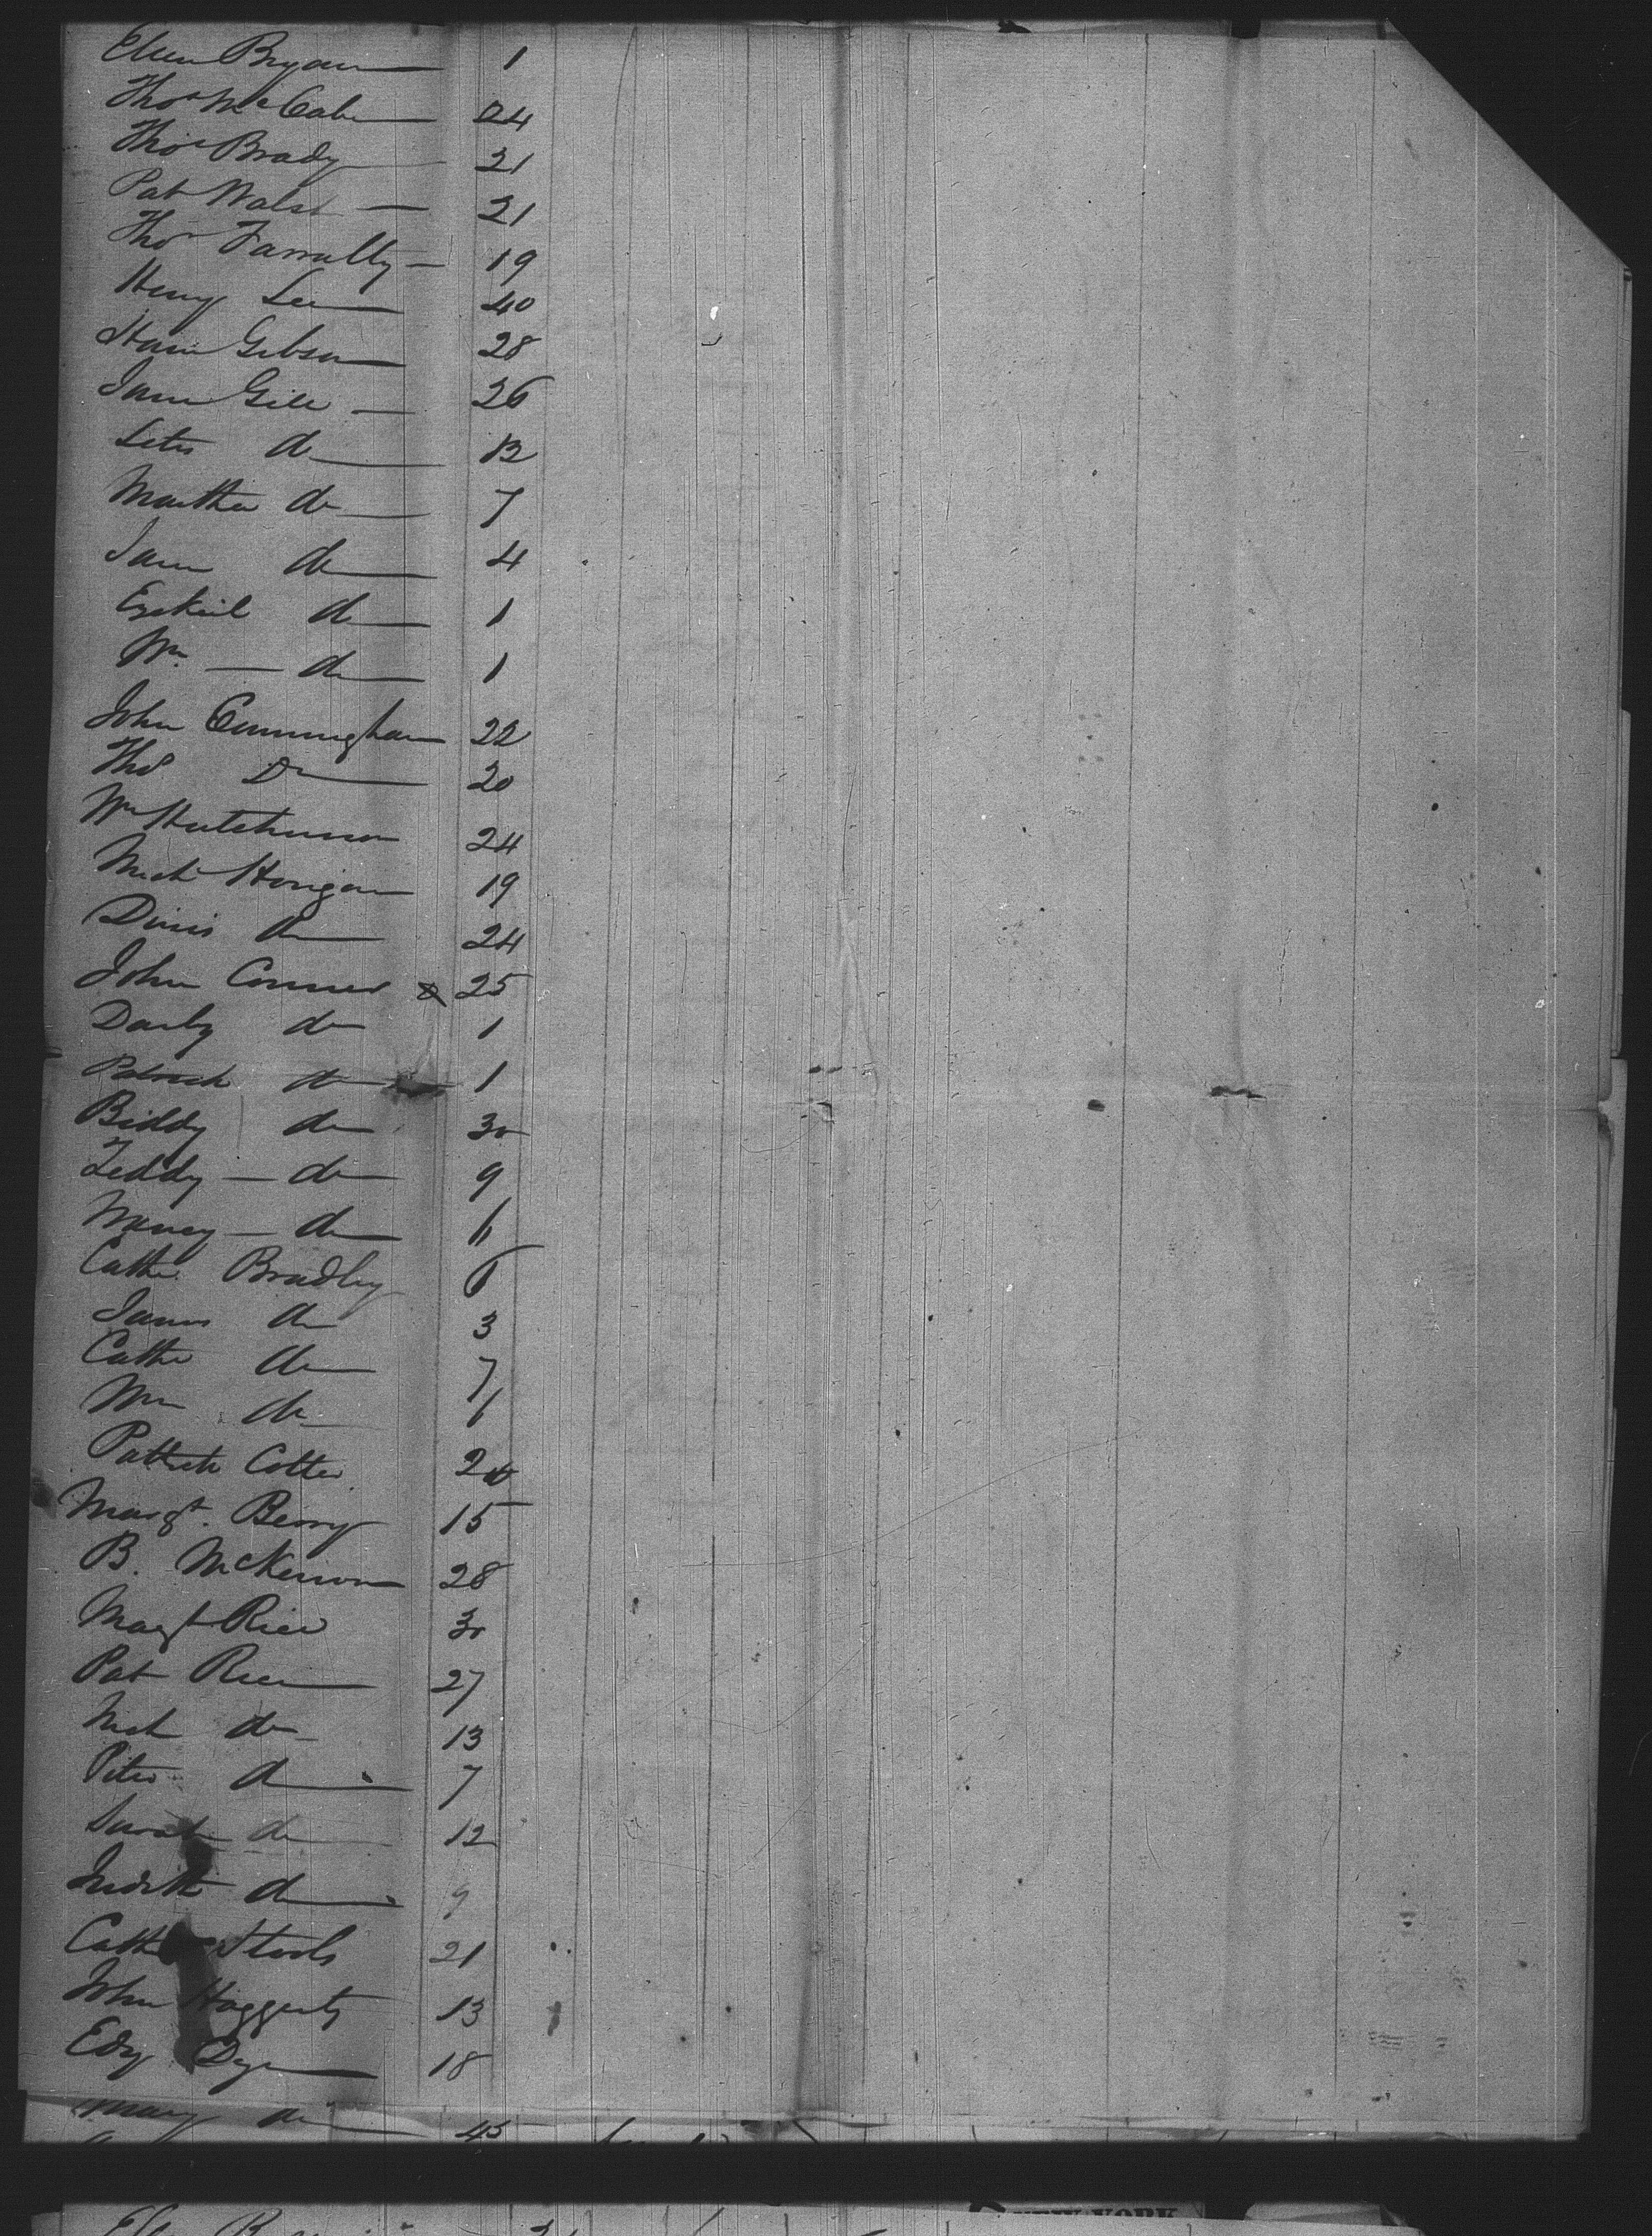 Ellen Bryan 1
Thos McCabe 24
Thos Brady 21
Pat Walsh 21
Thos Farrally 19
Henry Lee 40
Gibson 28
Jane Gill 26
do 12
Martha do 7
Jane do 4
Ezekiel do 1
Wm do 1
John Cunningham 22
Thos Do 20
Wm Hutchinson 24
Mich Horigan 19
Dinis do 24
John Conner 25
Darby do 1
Patrick do 1
Biddy do 30
Teddy do 9
Nancy do 6
Cathe. Bradley 6
James do 3
Cathe do 7
Wm do 1
Patrick Cotter 20
Margt. Berry 15
B. McKennon 28
Margt Rice 30
Pat Rice 27
Mich do 13
Peter do 7
Sarah do 12
Judith do 9
Cath 21
John Haggerty 13
Edy Dyer 18
Mary do 45
NEW YORK